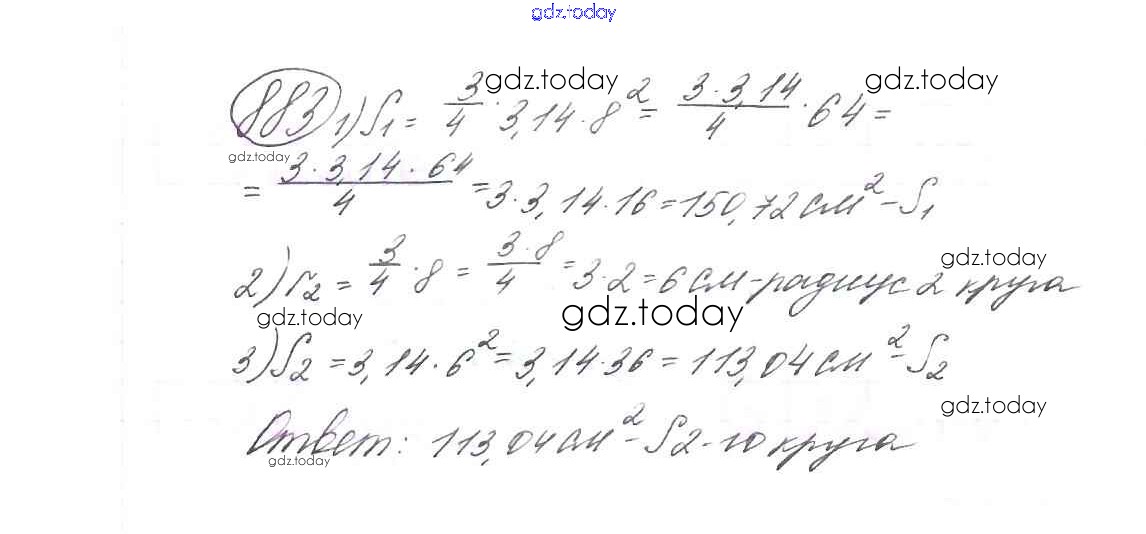 gdz.today
883 1) S₁ = 3/4 · 3,14 · 8² = (3 · 3,14)/4 · 64 =
gdz.today gdz.today
gdz.today
= (3 · 3,14 · 64)/4 = 3 · 3,14 · 16 = 150,72 см² – S₁
2) r₂ = 3/4 · 8 = (3 · 8)/4 = 3 · 2 = 6 см – радиус 2 круга
gdz.today
gdz.today gdz.today
3) S₂ = 3,14 · 6² = 3,14 · 36 = 113,04 см² – S₂
gdz.today
Ответ: 113,04 см² – S 2-го круга
gdz.today